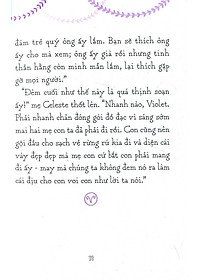 đám trẻ quý ông ấy lắm. Bạn sẽ thích ông
ấy cho mà xem; ông ấy già rồi nhưng tinh
thần hẵng còn minh mẫn lắm, lại thích gặp
gỡ mọi người.”
“Đêm cuối như thế này là quá thịnh soạn
ấy!” mẹ Celeste thốt lên. “Nhanh nào, Violet.
Phải nhanh chân đóng gói đồ đạc vì sáng sớm
mai hai mẹ con ta đã phải đi rồi. Con cũng nên
gội đầu cho sạch vẻ rừng rú kia đi và diện cái
váy đẹp đẽ mà mẹ con cứ bắt con phải mang
đi ấy - may mà chúng ta không đem nó ra làm
cái địu cho con voi con như lời ta nói.”